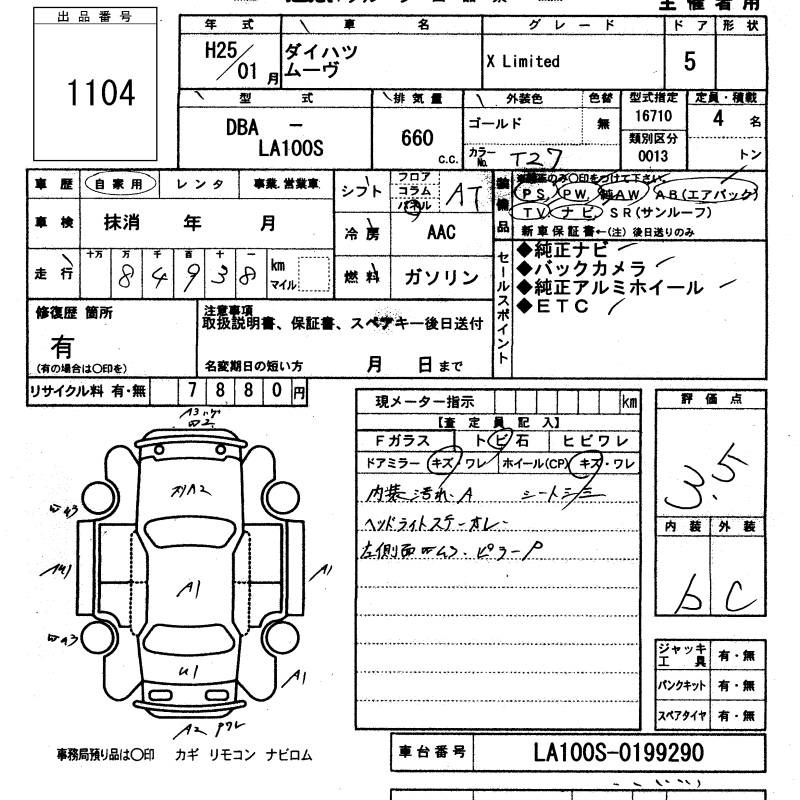 主催者用
出品番号
1104
年式 車名 グレード ドア 形状
H25/01月 ダイハツ ムーヴ X Limited 5
型式 排気量 外装色 色替 型式指定 定員・積載
DBA - LA100S 660 c.c. ゴールド 無 16710 4名
カラーNo. T27 類別区分 0013 トン
車歴 自家用 レンタ 事業.営業車
シフト フロア コラム パネル AT
装備品 PS, PW, 純AW AB(エアバック)
TV ナビ, SR(サンルーフ)
新車保証書←(注) 後日送りのみ
車検 抹消 年 月
冷房 AAC
走行 十万 万 千 百 十 一 km マイル
84938
燃料 ガソリン
セールスポイント
◆純正ナビ
◆バックカメラ
◆純正アルミホイール
◆ETC
修復歴 箇所
有
(有の場合は〇印を)
注意事項
取扱説明書、保証書、スペアキー後日送付
名変期日の短い方 月 日まで
リサイクル料 有・無 7880円
現メーター指示 km
【査定員記入】
Fガラス トビ石 ヒビワレ
ドアミラー キズ・ワレ ホイール(CP) キズ・ワレ
内装汚れA
ヘッドライトステーオレ
左側面
ピラーP
評価点
3.5
内装 外装
b C
A2
A1
A1
U1
A1
A2
ジャッキ工具 有・無
パンクキット 有・無
スペアタイヤ 有・無
事務局預り品は〇印 カギ リモコン ナビロム
車台番号 LA100S-0199290